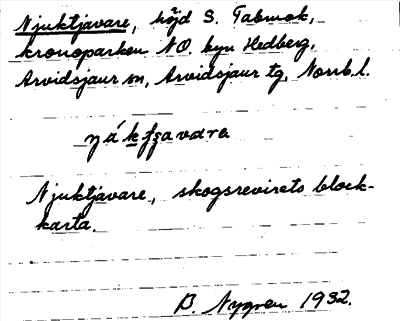 Njuktjavare, höjd S. Tabmok,
kronoparken NO. byn Hedberg,
Arvidsjaur sn, Arvidsjaur tg, Norrb. l.
Njuktjavare, skogsrevirets block-
karta.
B. Nygren 1932.